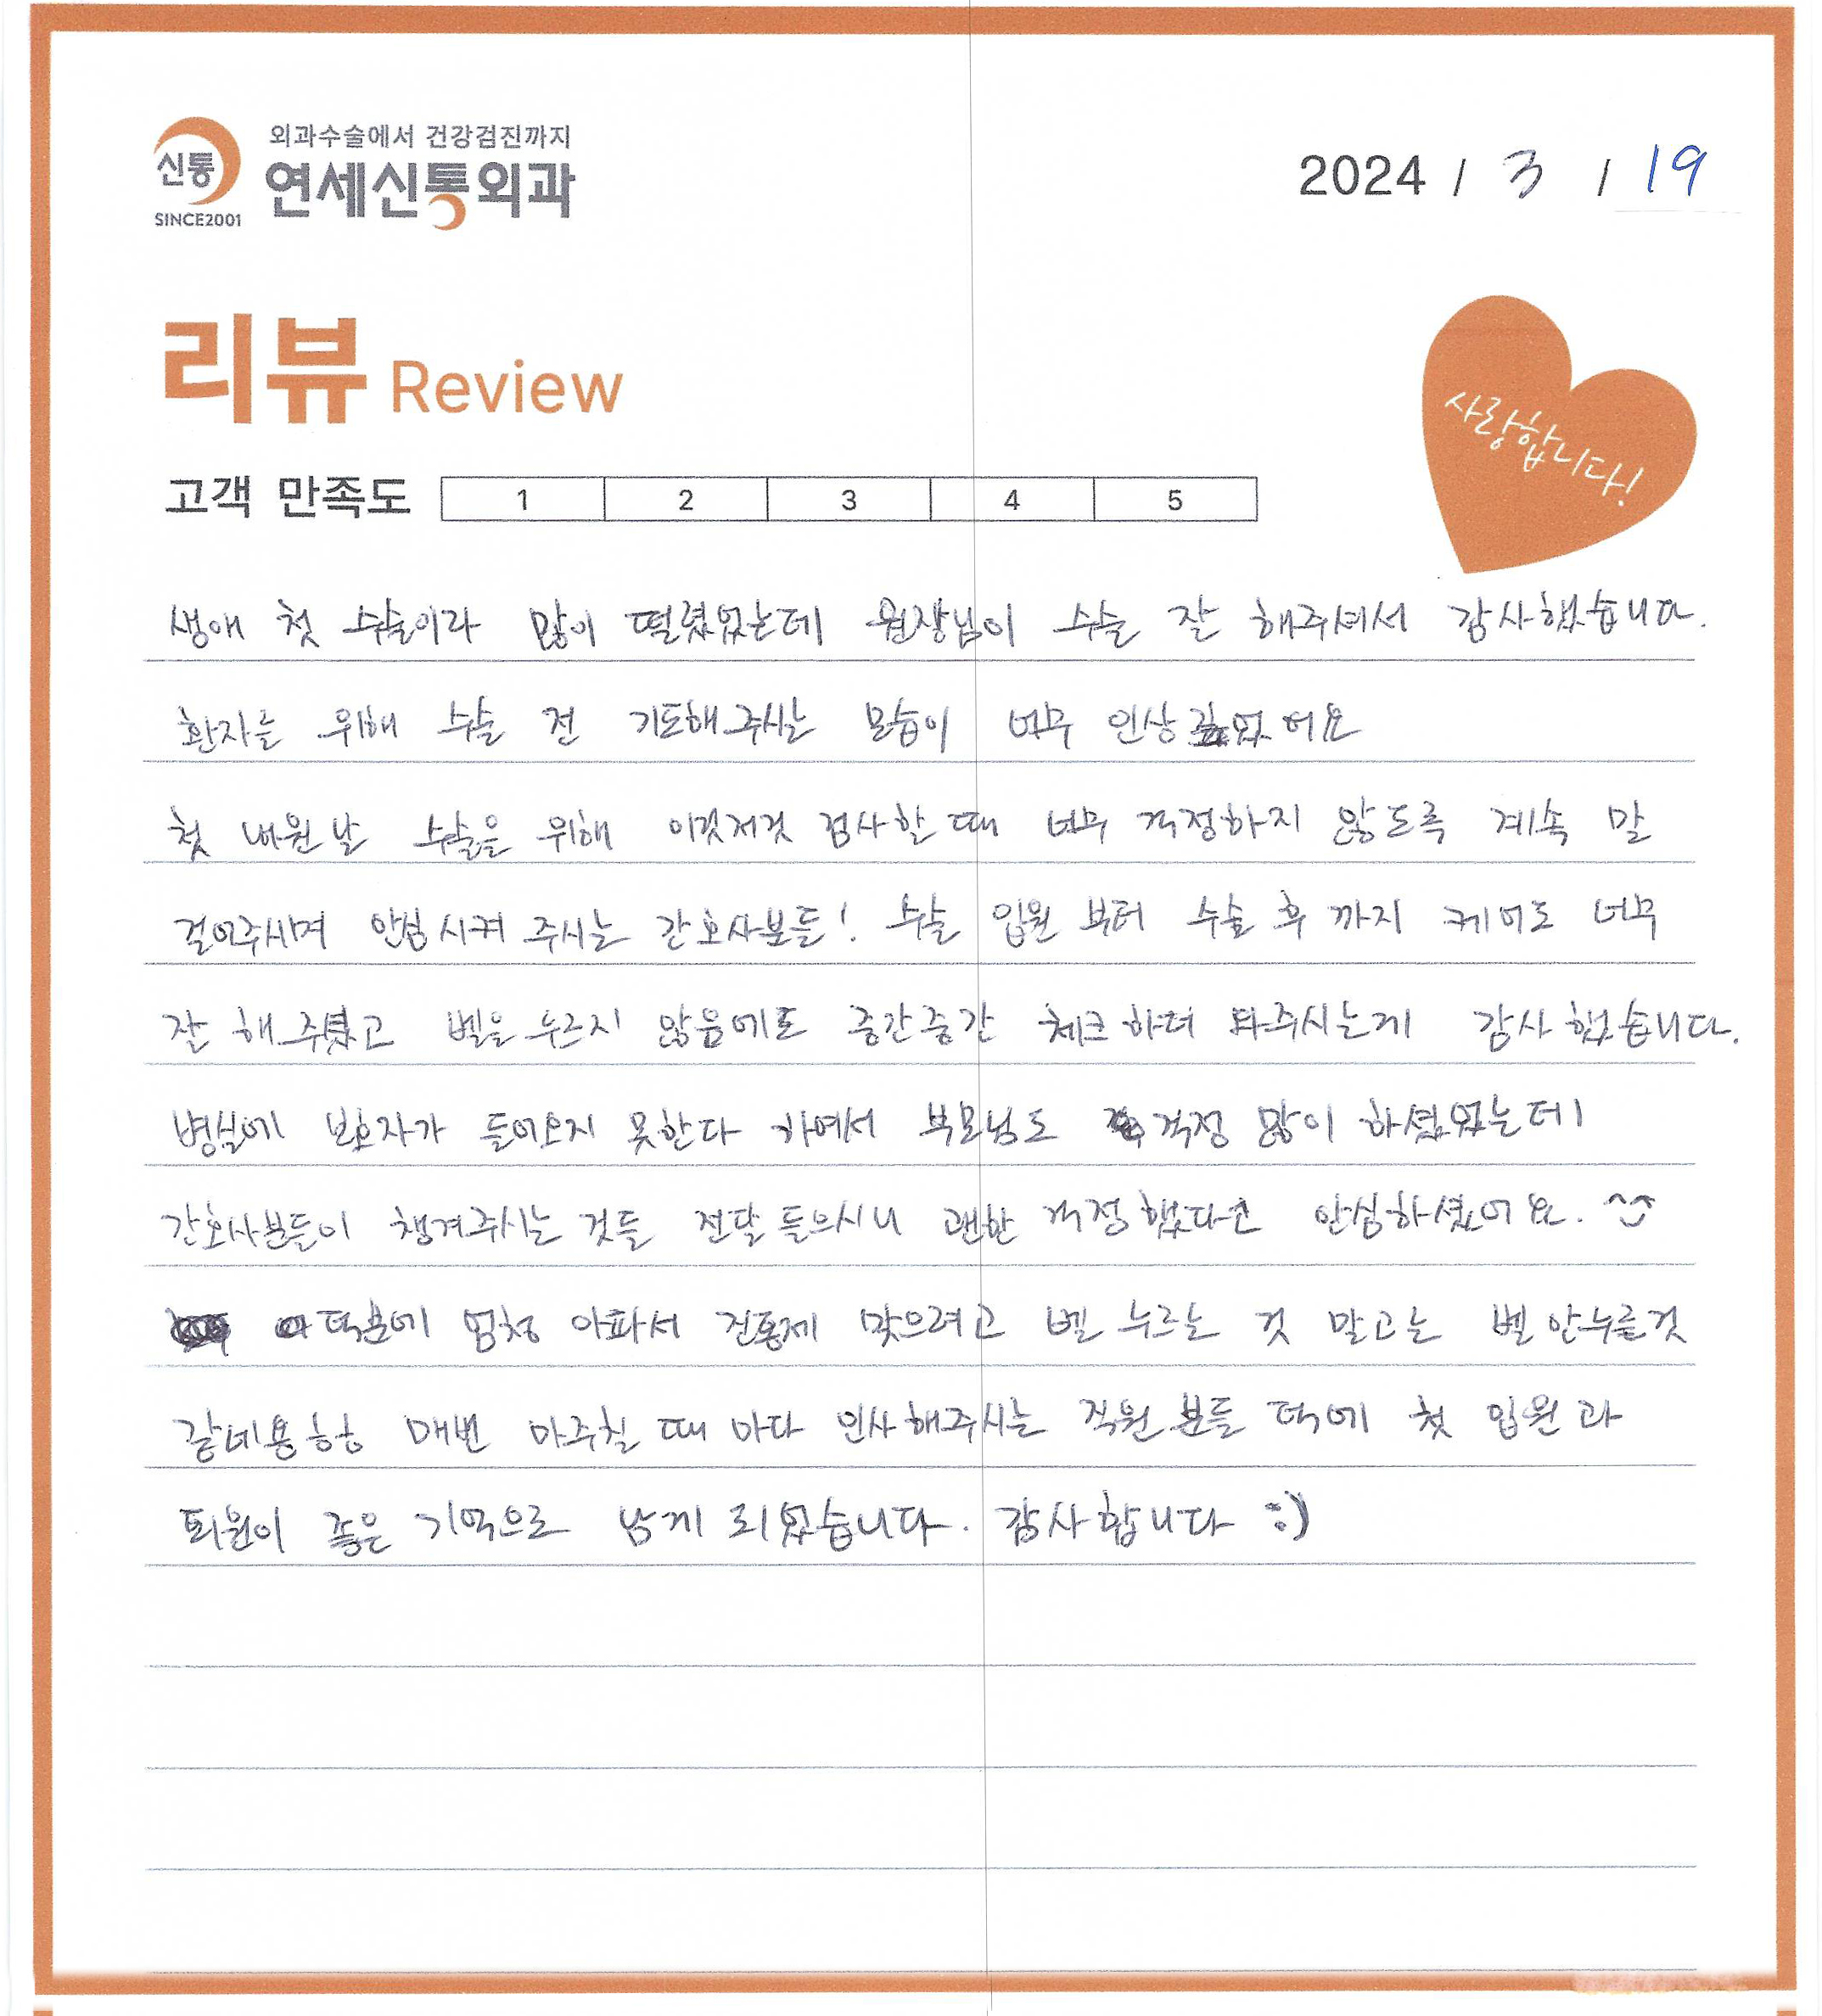 외과수술에서 건강검진까지
신통 연세신통외과
SINCE2001
2024 / 3 / 19
리뷰 Review
사랑합니다!
고객 만족도 1 2 3 4 5
생애 첫 수술이라 많이 떨렸었는데 원장님이 수술 잘 해주셔서 감사했습니다.
환자를 위해 수술 전 기도해주시는 모습이 너무 인상깊었어요
첫 내원날 수술을 위해 이것저것 검사할 때 너무 걱정하지 않도록 계속 말
걸어주시며 안심시켜 주시는 간호사분들! 수술 입원 부터 수술 후 까지 케어도 너무
잘 해 주셨고 벨을 누르지 않음에도 중간중간 체크하러 와주시는게 감사했습니다.
병실에 보호자가 들어오지 못한다 하여서 부모님도 걱정 많이 하셨었는데
간호사분들이 챙겨주시는 것들 전달 들으시니 괜한 걱정했다고 안심하셨어요. ^^
덕분에 엄청 아파서 진통제 맞으려고 벨 누르는 것 말고는 벨 안누를것
같네용ㅎㅎ 매번 마주칠 때 마다 인사해주시는 직원분들 덕에 첫 입원과
퇴원이 좋은 기억으로 남게 되었습니다. 감사합니다 :)